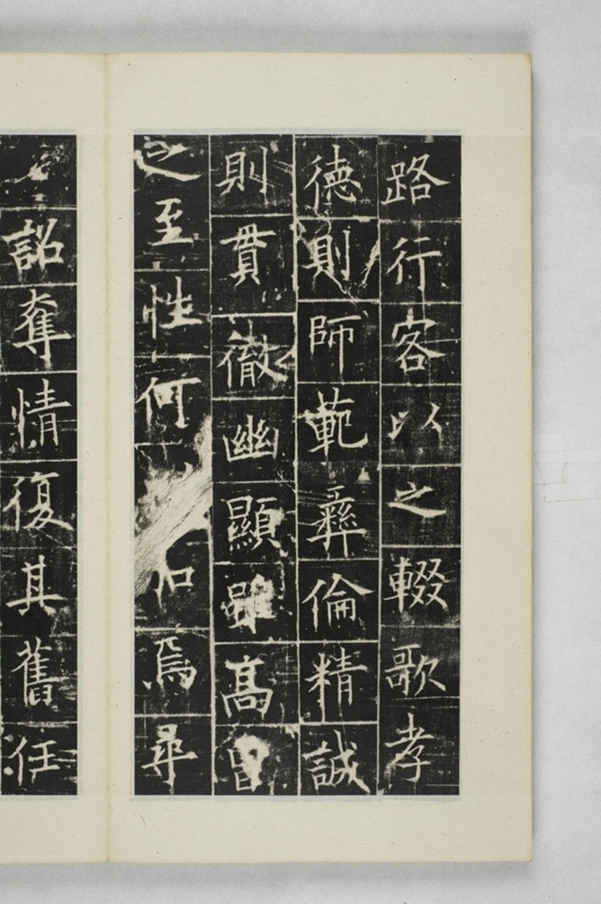 路行客以之輟歌孝
德則師範彝倫精誠
則貫徹幽顯雖高曾
之至性何焉尋
詔奪情復其舊任